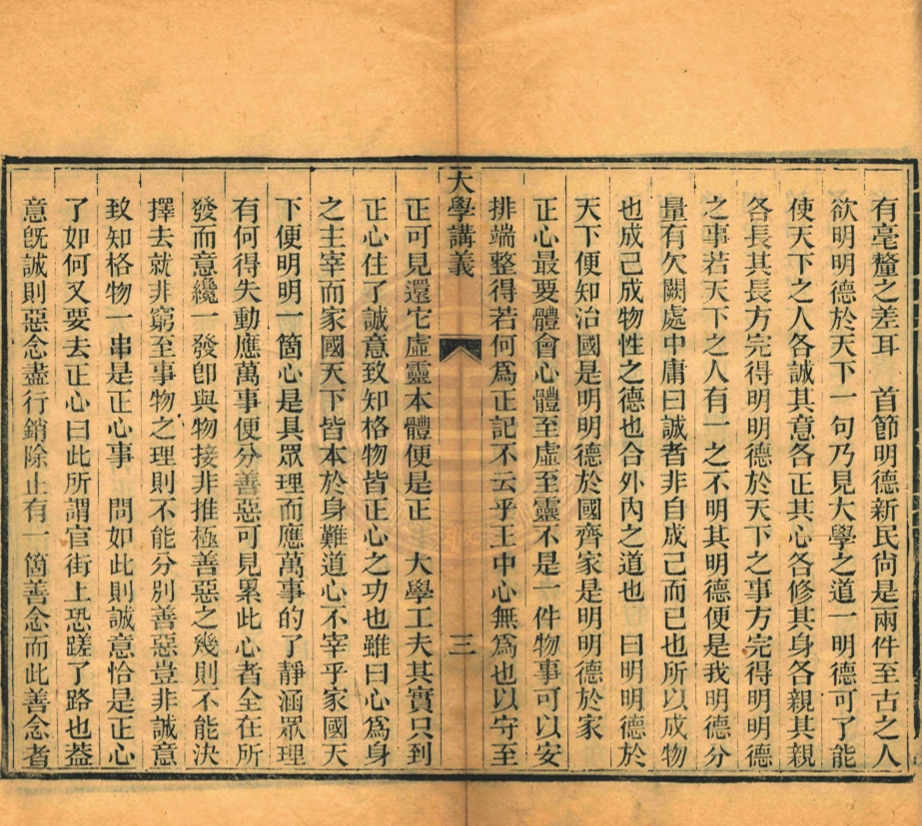 有毫釐之差耳　首節明德新民尙是兩件至古之人
欲明明德於天下一句乃見大學之道一明德可了能
使天下之人各誠其意各正其心各修其身各親其親
各長其長方完得明明德於天下之事方完得明明德
之事若天下之人有一之不明其明德便是我明德分
量有欠闕處中庸曰誠者非自成己而已也所以成物
也成己成物性之德也合外內之道也　曰明明德於
天下便知治國是明明德於國齊家是明明德於家
正心最要體會心體至虛至靈不是一件物事可以安
排端整得若何爲正記不云乎王中心無爲也以守至
大學講義　三
正可見還它虛靈本體便是正　大學工夫其實只到
正心住了誠意致知格物皆正心之功也雖曰心爲身
之主宰而家國天下皆本於身難道心不宰乎家國天
下便明明一箇心是具眾理而應萬事的了靜涵眾理
有何得失動應萬事便分善惡可見累此心者全在所
發而意纔一發卽與物接非推極善惡之幾則不能決
擇去就非窮至事物之理則不能分別善惡豈非誠意
致知格物一串是正心事　問如此則誠意恰是正心
了如何又要去正心曰此所謂官街上恐蹉了路也葢
意旣誠則惡念盡行銷除止有一箇善念而此善念者